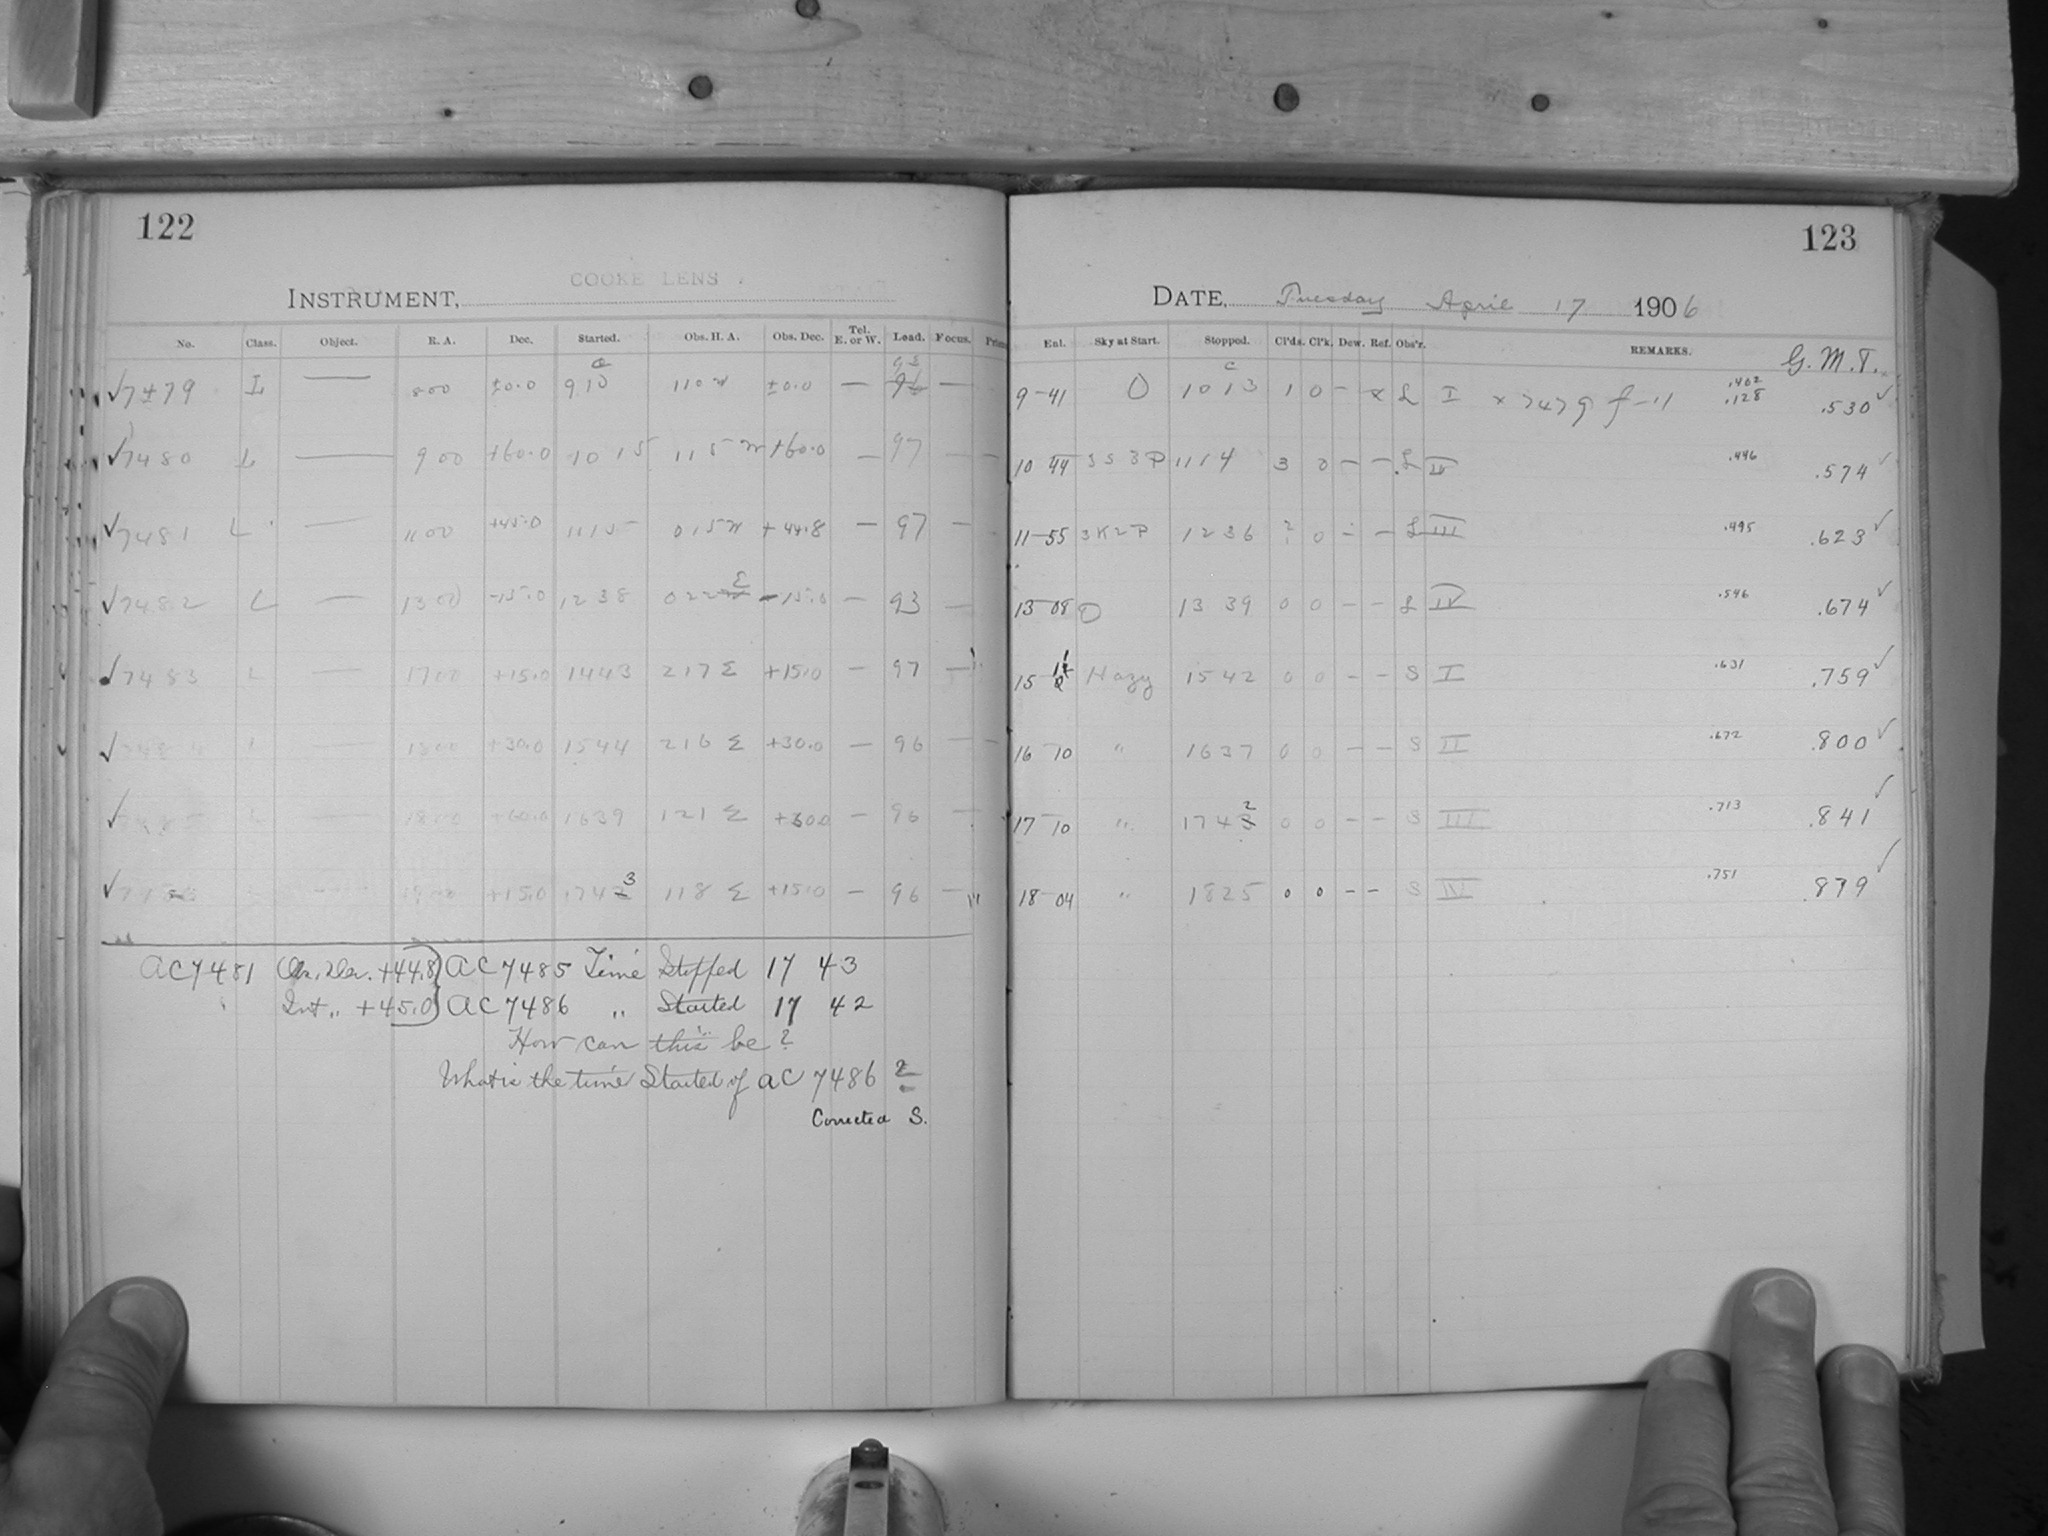 122
COOKE LENS.
INSTRUMENT,
No. Class. Object. R. A. Dec. Started. Obs. H. A. Obs. Dec. Tel. E. or W. Load. Focus.
✓7479 L — 8 00 ±0.0 9 10 1 10 W ±0.0 — 96 —
✓7480 L — 9 00 +60.0 10 15 1 15 W +60.0 — 97 —
✓7481 L — 11 00 +45.0 11 15 0 15 W +44.8 — 97 —
✓7482 L — 13 00 -15.0 12 38 0 22 E -15.0 — 93 —
✓7483 L — 17 00 +15.0 14 43 2 17 E +15.0 — 97 —
✓ — 18 00 +30.0 15 44 2 16 E +30.0 — 96 —
✓ L — 18 00 +60.0 16 39 1 21 E +60.0 — 96 —
✓ +15.0 17 42 3 1 18 E +15.0 — 96 —
AC 7481 Ob. Dec. +44.8 AC 7485 Time Stopped 17 43
Int „ +45.0 AC 7486 „ Started 17 42
How can this be?
What is the time Started of AC 7486?
Corrected S.
123
DATE, Tuesday April 17 1906
Ent. Sky at Start. Stopped. Cl'ds. Cl'k. Dew. Ref. Obs'r. REMARKS. G. M. T.
9-41 0 10 13 1 0 — x L I x 7479 f-11 .402 .128 .530 ✓
10 44 3S 3P 11 14 3 0 — — L II .446 .574 ✓
11-55 3K2P 12 36 ? 0 — — L III .495 .623 ✓
13-08 0 13 39 0 0 — — L IV .546 .674 ✓
15 Hazy 15 42 0 0 — — S I .631 .759 ✓
16 10 " 16 37 0 0 — — S II .672 .800 ✓
17 10 " 17 43 2 0 0 — — S III .713 .841 ✓
18-04 " 18 25 0 0 — — S IV .751 .879 ✓